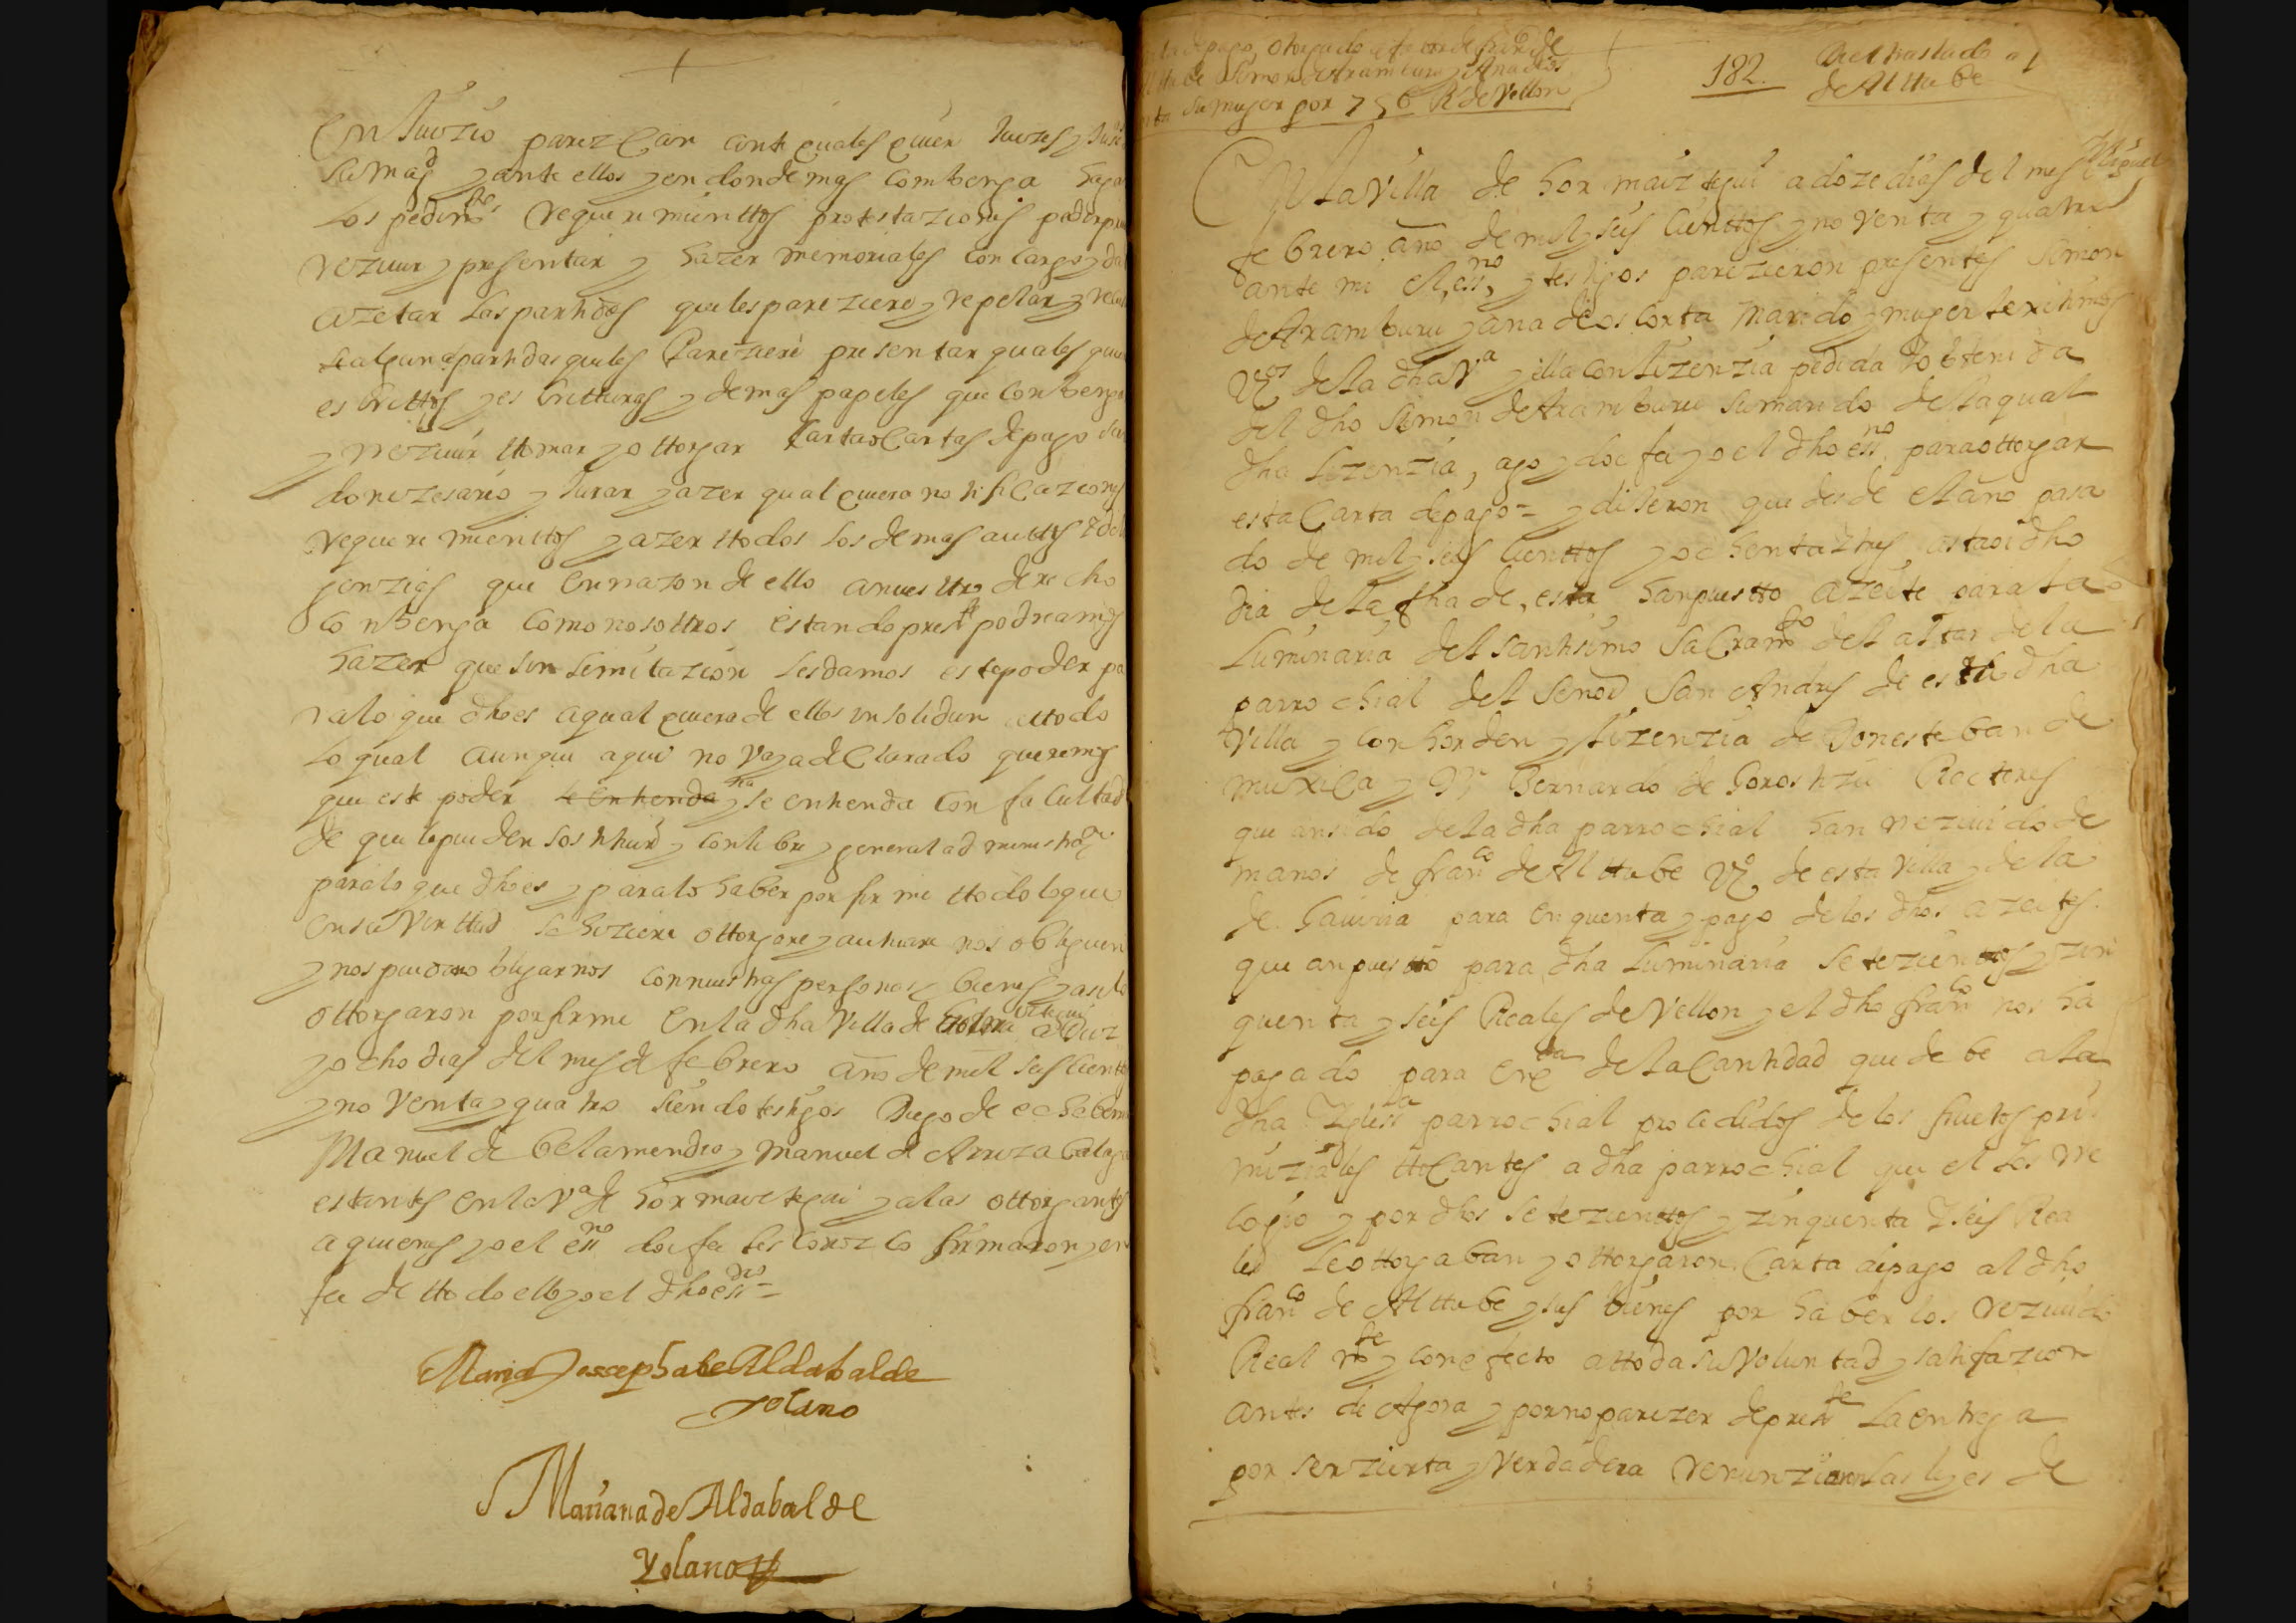 En Juizio parezcan ante quales quier Juezes y Jus
su Magd y ante ellos y en donde mas combenga haga
Los pedimtos requerimienttos protestaziones pedir
rezivir y presentar y hazer memoriales con cargo y da
azetar las partidas que les pareziere y repelar y
si algunas partidas que les Pareziere presentar quales quie
escrittos y escritturas y demas papeles que combenga
y rezivir ttomar y ottorgar Carta o Cartas de pago
do nezesario y Jurar y azer qual quiera notificaziones
requerimienttos y azer ttodos los demas auttos y dili
jenzias que en razon de ello a nuestro derecho
combenga como nosottros estando preste podreamos
hazer que sin limitazion les damos este poder pa
ra lo que dho es a qual quiera de ellos in solidun y ttodo
lo qual aunque aqui no vaya declarado queremos
que este poder se entienda y se entienda con facultad
de que le pueden sostituir y con libre y general administraon
para lo que dho es y para lo haber por firme ttodo lo que
en su virttud se hiziere ottorgare y autuare nos obliguen
y nos puedan obligarnos con nuestras personas y bienes y asi lo
ottorgaron por firme En la dha Villa de a diez
y ocho dias del mes de febrero año de mil seis cientto
y noventa y quatro siendo testigos Diego de echeberri
Manuel de Belamendi y Manuel de Arrizabalaga
estantes en la Va de hormaiztegui y a las ottorgantes
a quienes yo el essno doi fee les conozco firmaron y en
fee de ttodo ello yo el dho essno =
Maria Josepha de Aldabalde
yolano
Mariana de Aldabalde
Yolano
ta de pago Otorgado a favor de Franco de
Alttube Simon de Aramburu y Ana de os
corta su muger por 756 Rs de Vellon
182.
Di el traslado a
de Alttube
En la Villa de hormaiztegui a doze dias del mes
febrero año de mil y seis cienttos y noventa y quatro
ante mi el essno y testigos parezieron presentes Simon
de Aramburu y ana de oscorta marido y muger lexitimos
Vezos de la dha Va y ella con lizenzia pedida y obtenida
del dho Simon de Aramburu su marido de la qual
dha lizenzia, ago y doi fee yo el dho essno para ottorgar
esta Carta de pago = y dixeron que desde el año pasa
do de mil y seis cienttos y ochenta y tres asta oi dho
dia de la fha de esta han puestto azeite para la
Luminaria del santisimo Sacramto del altar de la
parrochial del Señor San Andres de esta dha
Villa y con horden y lizenzia de Don esteban de
muxica y Dn Bernardo de Gorostizu Rectores
que an sido de la dha parrochial han rezivido de
manos de franco de Alttube Vo de esta Villa y de la
de Gaviria para en quenta y pago de los dhos azeites
que an puestto para dha Luminaria setezienttos y zin
quenta y seis Reales de Vellon y el dho franco nos ha
pagado para en qta de la Cantidad que debe a la
dha Iglesa parrochial prozedidos de los fructos pri
miziales ttocantes a dha parrochial que el les re
cogio y por dhos setezienttos y zinquenta y seis Rea
les le ottorgaban y ottorgaron Carta de pago al dho
franco de Alttube y sus bienes por haberlos rezivido
Real mte y con efecto a ttoda su Voluntad y satifazion
antes de Agora y por no parezer de preste La entrega
por ser zierta y Verdadera renunziaron las leyes de